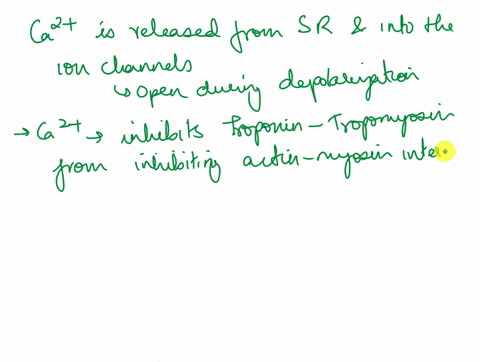 Ca²⁺ is released from SR & into the
ion channels
↳ open during depolarization
→ Ca²⁺ → inhibits Troponin - Tropomyosin
from inhibiting actin - myosin inte